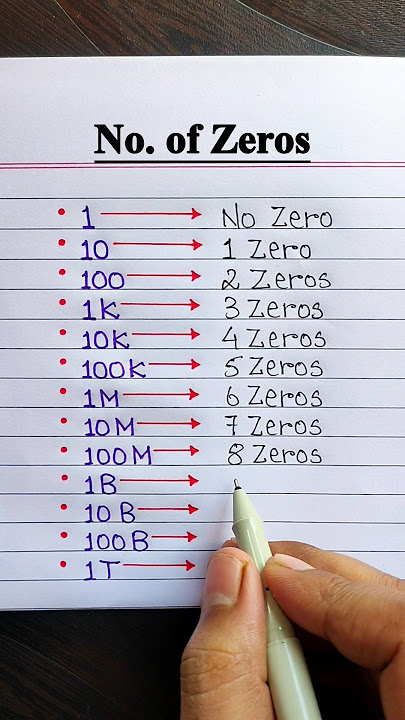 No. of Zeros
• 1 → No Zero
• 10 → 1 Zero
• 100 → 2 Zeros
• 1K → 3 Zeros
• 10K → 4 Zeros
• 100K → 5 Zeros
• 1M → 6 Zeros
• 10M → 7 Zeros
• 100M → 8 Zeros
• 1B →
• 10B →
• 100B →
• 1T →